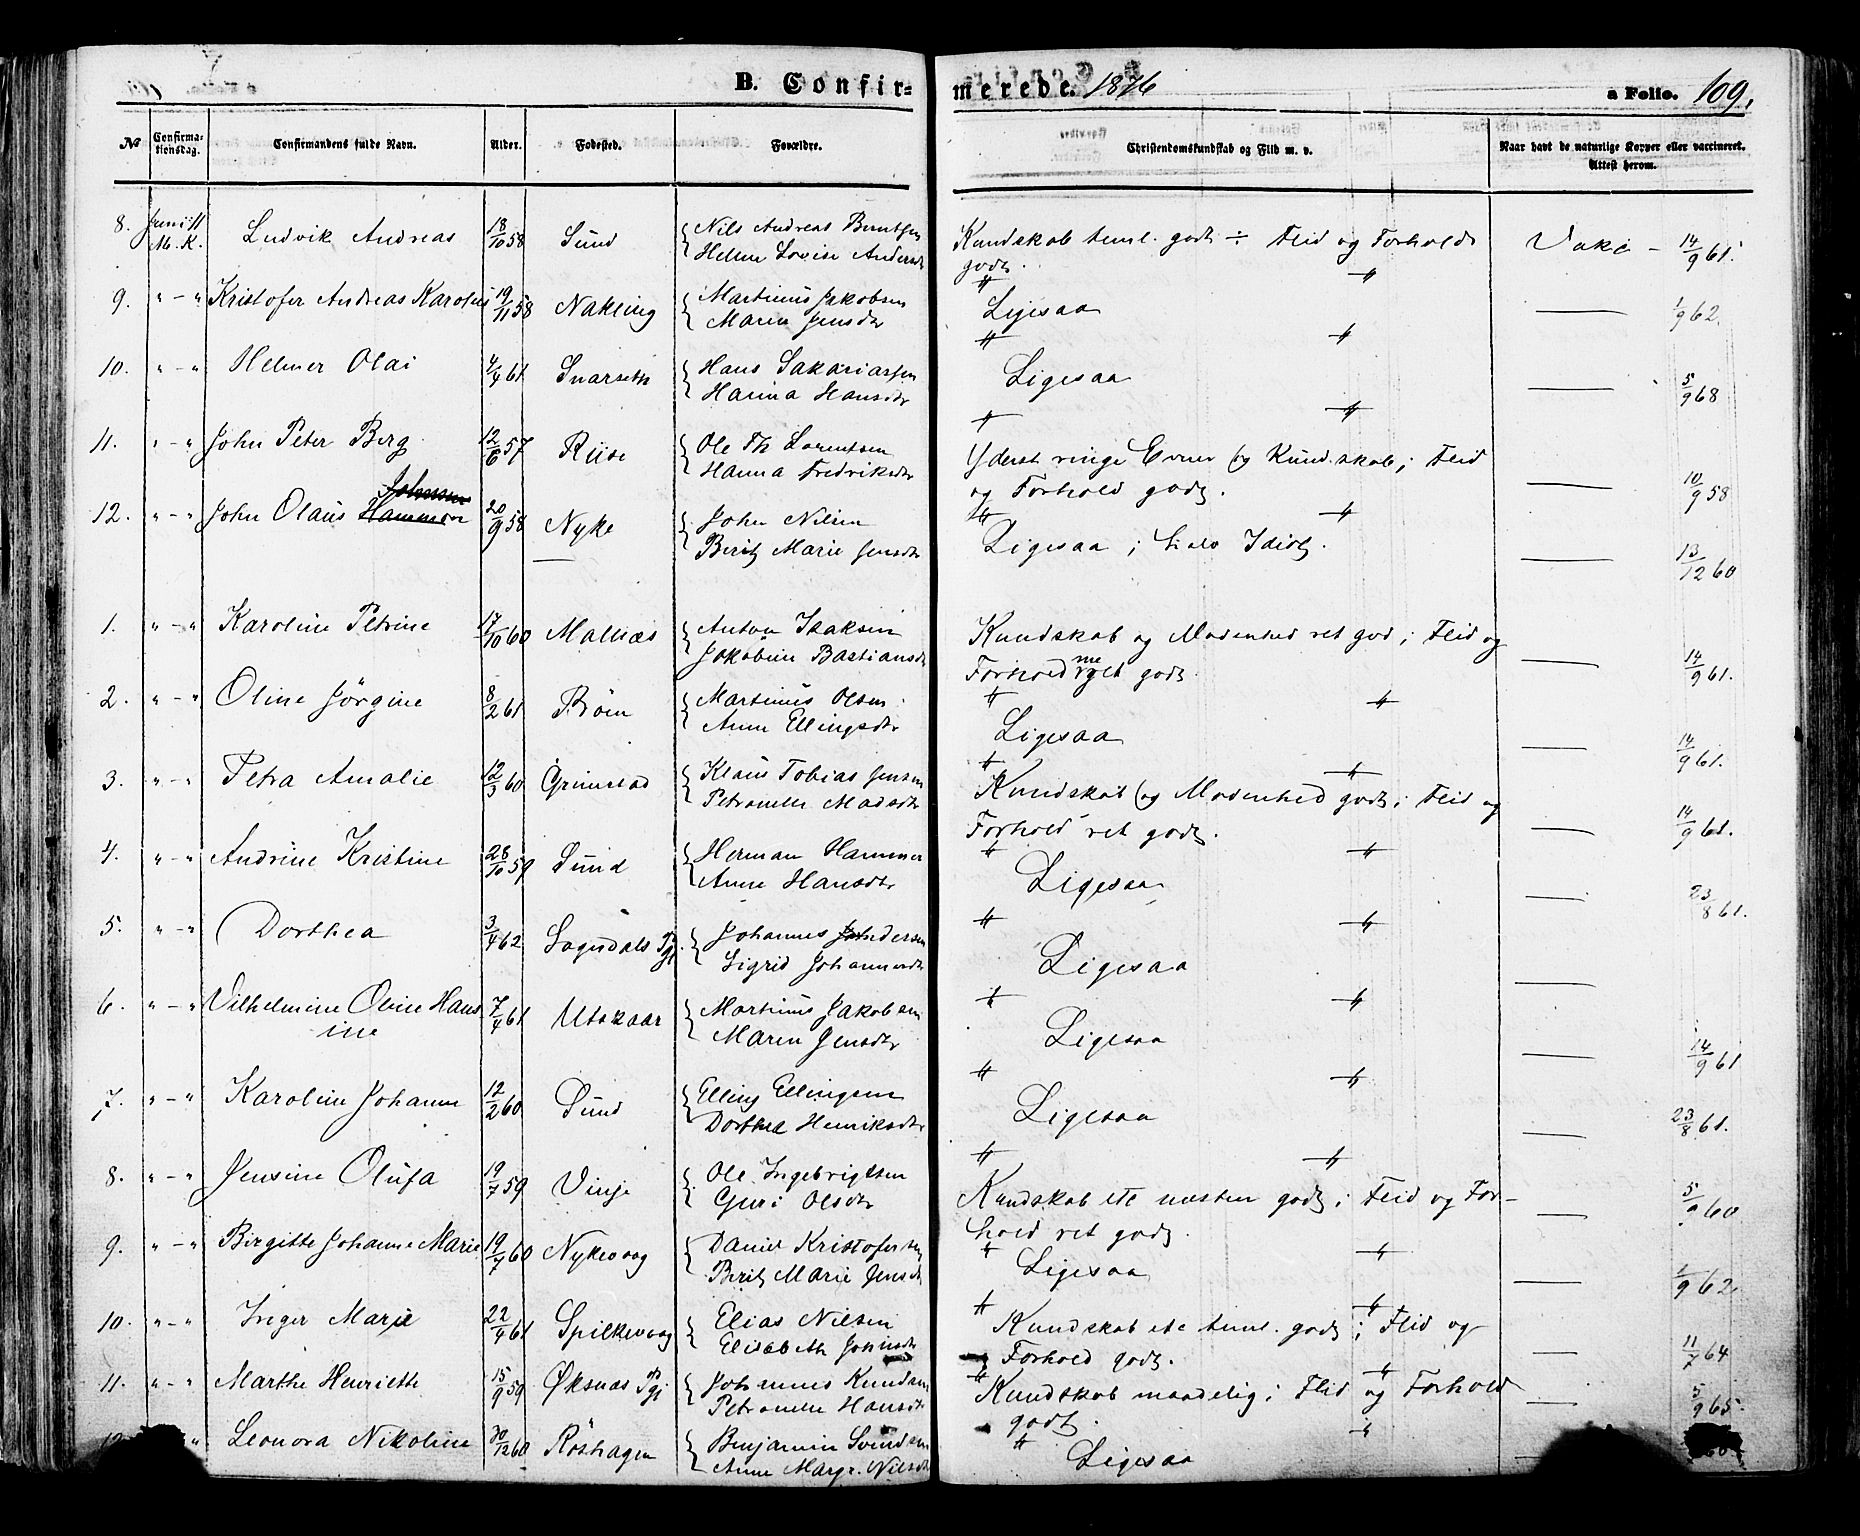 B. Confir-
merede. 1876
a Folio. 109.
No
Confirma-
tionsdag.
Confirmandens fulde Navn.
Alder.
Fødested.
Forældre.
Christendomskundskab og Flid m. v.
Naar havt de naturlige Kopper eller vaccineret.
Attest herom.
8. Juni 11 Ludvik Andreas 18/10 58 Sund Nils Andreas Berntsen Kundskab teml. godt ÷ Flid og Forhold Vake - 14/9 61.
M. K. Helene Lovise Andersdtr godt.
9. " - " Kristofer Andreas Karolius 19/11 58 Nakling Martinus Jakobsen Ligesaa 1/9 62.
Maren Jensdtr
10. " - " Helmer Olai 4/4 61 Snarseth Hans Sakariassen Ligesaa 5/9 68
Hanna Hansdtr
11. " - " John Peter Berg 12/6 57 Riise Ole Th Lorentsen Yderst ringe Evner og Kundskab; Flid 10/9 58
Hanna Fredriksdtr og Forhold godt.
Johnsen
12. " - " John Olaus Hammer 20/9 58 Nyke John Nilsen Ligesaa; halv Idiot. 13/12 60
Berit Marie Jensdtr
1. " - " Karoline Petrine 17/10 60 Malnæs Anton Isaksen Kundskab og Modenhed ret god; Flid og 14/9 61.
Jakobine Bastiansdtr Forhold meget godt.
2. " - " Oline Jörgine 8/2 61 Böen Martinus Olsen Ligesaa 14/9 61.
Anne Ellingsdtr
3. " - " Petra Amalie 12/3 60 Grimstad Klaus Tobias Jensen Kundskab og Modenhed godt; Flid og 14/9 61.
Petronelle Madsdtr Forhold ret godt.
4. " - " Andrine Kristine 28/10 59 Sund Herman Hammer Ligesaa 23/8 61.
Anne Hansdtr
5. " - " Dorthea 3/4 62 Sognedals Pgj. Johannes Andersen Ligesaa
Sigrid Johannesdtr
6. " - " Vilhelmine Oline Hans 7/4 61 Utskaar Martinus Jakobsen Ligesaa 14/9 61
ine Maren Jensdtr
7. " - " Karoline Johanne 12/2 60 Sund Elling Ellingsen Ligesaa 23/8 61.
Dorthea Henriksdtr
8. " - " Jensine Olufa 19/7 59 Vinje Ole Ingebrigtsen Kundskab etc næsten godt; Flid og For- 5/9 60
Guri Olsdtr hold ret godt.
9. " - " Birgitte Johanne Marie 19/7 60 Nykevaag Daniel Kristofersen Ligesaa 1/9 62
Berit Marie Jensdtr
10. " - " Inger Marie 22/4 61 Spilkevaag Elias Nilsen Kundskab etc teml. godt; Flid og 11/7 64
Elisabeth Johnsdtr Forhold godt.
11. " - " Marthe Henriette 15/9 59 Øksnæs Pgj Johannes Knudsen Kundskab maadelig; Flid og Forhold 5/9 65
Petronelle Hansdtr godt.
Leonora Nikoline 30/12 60 Röshagen Benjamin Svendsen Ligesaa
Anne Margr. Nilsdtr